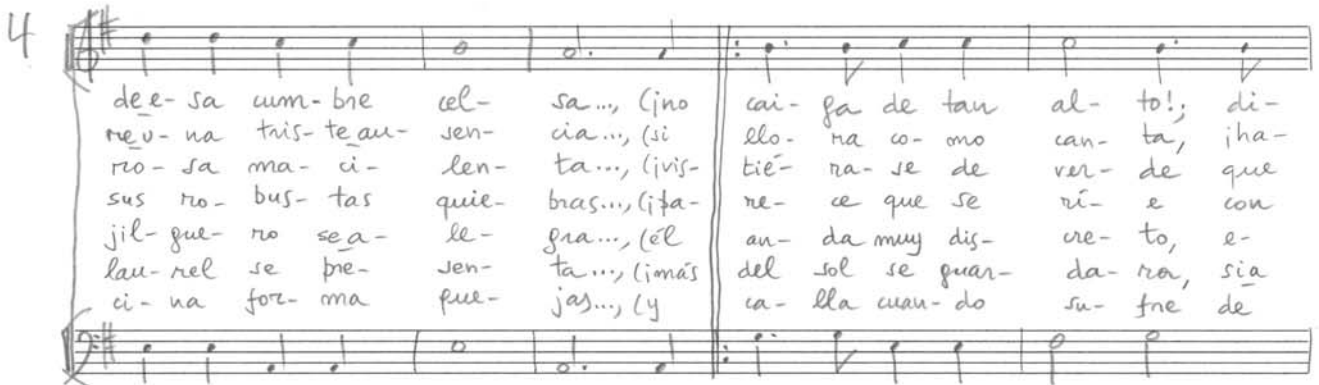 4
dee-sa cum-bre cel- sa..., (¡no cai- ga de tan al- to!; di-
reu-na tris-teau- sen- cia..., (si llo- ra co-mo can- ta, ¡ha-
ro-sa ma-ci- len- ta..., (¡vis- tié- ra-se de ver- de que
sus ro-bus-tas quie- bras..., (¡pa- re- ce que se rí- e con
jil-gue-ro sea- le- gra..., (él an- da muy dis- cre- to, e-
lau-rel se pre- sen- ta..., (¡más del sol se guar- da-ra, sia
ci-na for-ma que- jas..., (y ca- lla cuan-do su- fre de